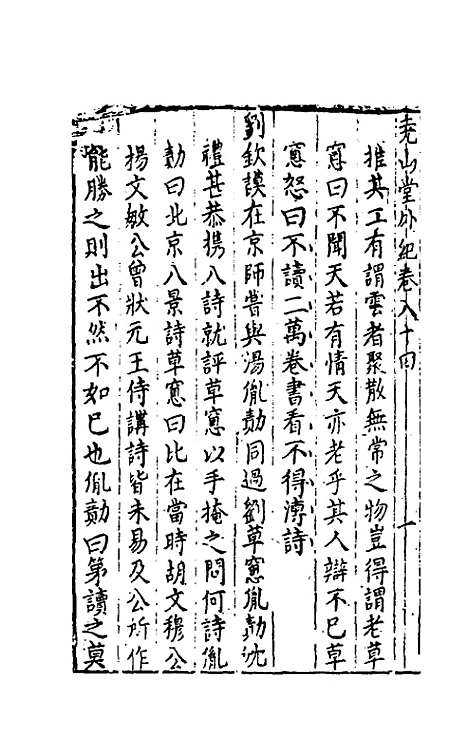 堯山堂外紀卷八十四
一
推其工有謂雲者聚散無常之物豈得謂老草
窓曰不聞天若有情天亦老乎其人辯不已草
窓怒曰不讀二萬卷書看不得溥詩
劉欽謨在京師嘗與湯胤勣同過劉草窓胤勣
禮甚恭携八詩就評草窓以手掩之問何詩胤
勣曰北京八景詩草窓曰比在當時胡文穆公
楊文敏公曾狀元王侍講詩皆未易及公所作
能勝之則出不然不如已也胤勣曰第讀之莫